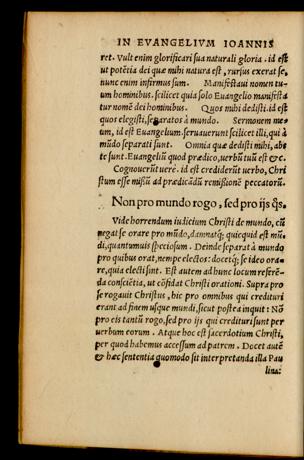 IN EVANGELIVM IOANNIS
ret. Vult enim glorificari sua naturali gloria. id est
ut potētia dei quæ mihi natura est, rursus exerat se,
nunc enim infirmus sum. Manifestaui nomen tu-
um hominibus. scilicet quia solo Euangelio manifesta
tur nomē dei hominibus. Quos mihi dedisti. id est
quos elegisti, separatos à mundo. Sermonem me-
um, id est Euangelium seruauerunt scilicet illi, qui à
mūdo separati sunt. Omnia quæ dedisti mihi, abs
te sunt. Euangeliū quod prædico, uerbū tuū est &c.
Cognouerūt uere. id est crediderūt uerbo, Chri
stum esse missū ad prædicādū remissionē peccatorū.
Non pro mundo rogo, sed pro ijs q̄s.
Vide horrendum iudicium Christi de mundo, cū
negat se orare pro mūdo, damnatq; quicquid est mū-
di, quantumuis speciosum. Deinde separat à mundo
pro quibus orat, nempe electos: docetq; se ideo ora-
re, quia electi sint. Est autem ad hunc locum referē-
da consciētia, ut cōfidat Christi orationi. Supra pro
se rogauit Christus, hic pro omnibus qui credituri
erant ad finem usque mundi, sicut postea inquit: Nō
pro eis tantū rogo, sed pro ijs qui credituri sunt per
uerbum eorum. Atque hoc est sacerdotium Christi,
per quod habemus accessum ad patrem. Docet autē
& hæc sententia quomodo sit interpretanda illa Pau
lina: